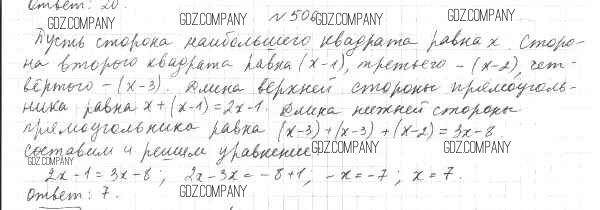 Ответ: 20.
GDZ.COMPANY № 506 GDZ.COMPANY GDZ.COMPANY
Пусть сторона наибольшего квадрата равна x. Сторо-
на второго квадрата равна (x-1), третьего - (x-2), чет-
вёртого - (x-3). Длина верхней стороны прямоуголь-
ника равна x + (x-1) = 2x-1. Длина нижней стороны
прямоугольника равна (x-3)+(x-3)+(x-2) = 3x-8
составим и решим уравнение:
GDZ.COMPANY GDZ.COMPANY GDZ.COMPANY
2x-1 = 3x-8; 2x-3x = -8+1; -x = -7; x = 7.
Ответ: 7.
GDZ.COMPANY